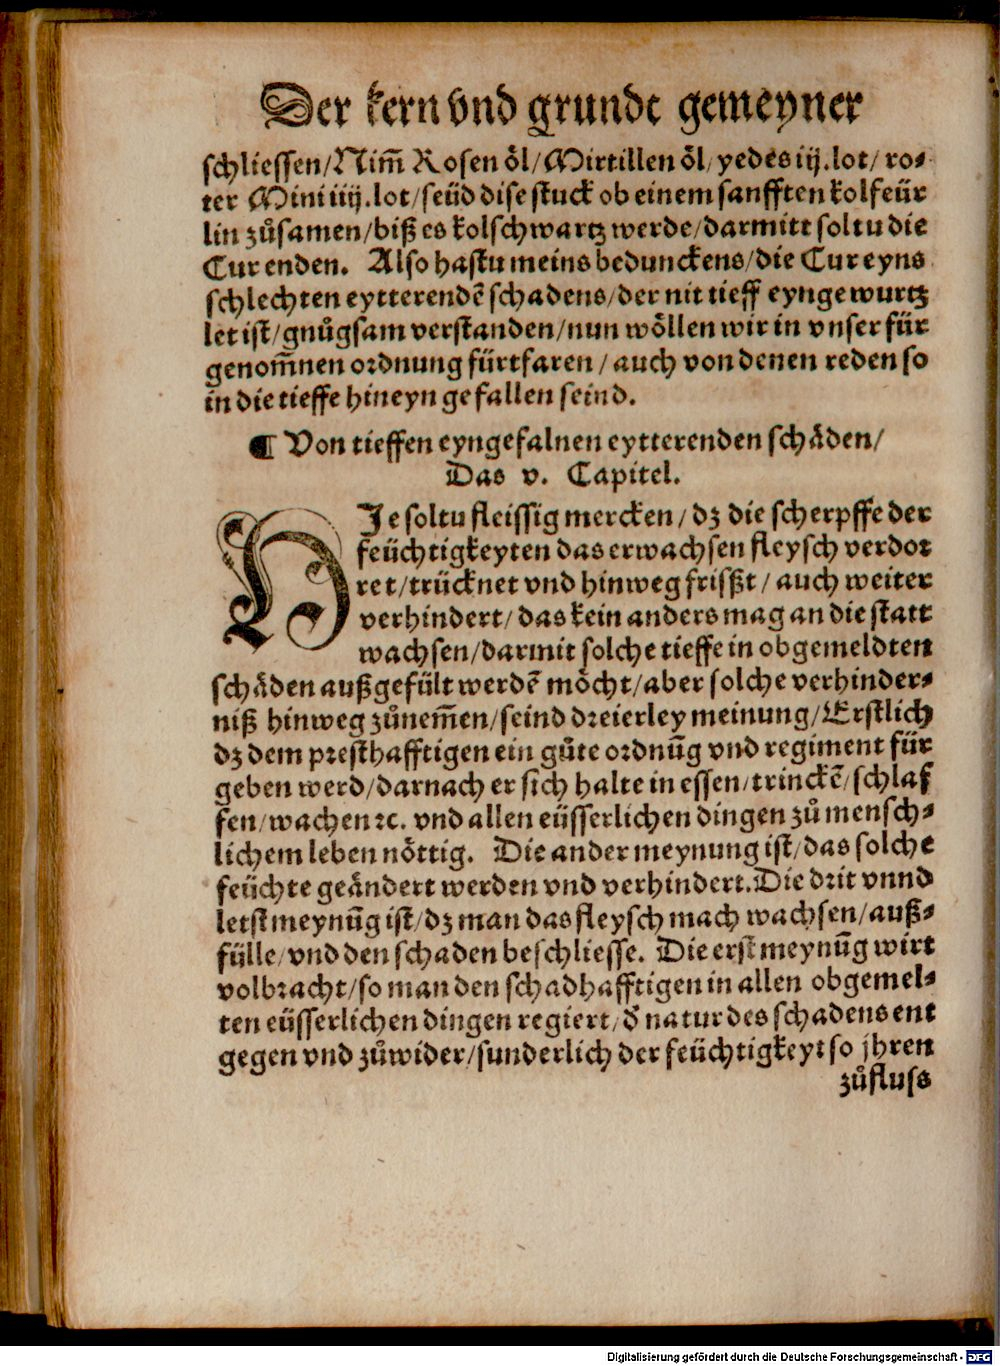 Der kern vnd grundt gemeyner
schliessen/Nim̃ Rosen öl/Mirtillen öl/yedes iij.lot/ro⸗
ter Mini iiij.lot/seüd dise stuck ob einem sanfften kolfeür
lin zůsamen/biß es kolschwartz werde/darmitt soltu die
Cur enden. Also hastu meins bedunckens/die Cur eyns
schlechten eytterendẽ schadens/der nit tieff eyngewurtz
let ist/gnůgsam verstanden/nun wöllen wir in vnser für
genom̃nen ordnung fürtfaren/auch von denen reden so
in die tieffe hineyn gefallen seind.
¶ Von tieffen eyngefalnen eytterenden schäden/
Das v. Capitel.
HIe soltu fleissig mercken/dz die scherpffe der
feüchtigkeyten das erwachsen fleysch verdor
ret/trücknet vnd hinweg frißt/auch weiter
verhindert/das kein anders mag an die statt
wachsen/darmit solche tieffe in obgemeldten
schäden außgefült werdẽ möcht/aber solche verhinder⸗
niß hinweg zůnem̃en/seind dreierley meinung/Erstlich
dz dem presthafftigen ein gůte ordnũg vnd regiment für
geben werd/darnach er sich halte in essen/trinckẽ/schlaf
fen/wachen ꝛc. vnd allen eüsserlichen dingen zů mensch⸗
lichem leben nöttig. Die ander meynung ist/das solche
feüchte geändert werden vnd verhindert. Die drit vnnd
letst meynũg ist/dz man das fleysch mach wachsen/auß⸗
fülle/vnd den schaden beschliesse. Die erst meynũg wirt
volbracht/so man den schadhafftigen in allen obgemel⸗
ten eüsserlichen dingen regiert/đ natur des schadens ent
gegen vnd zůwider/sunderlich der feüchtigkeyt so jhren
zůfluss
Digitalisierung gefördert durch die Deutsche Forschungsgemeinschaft - DFG